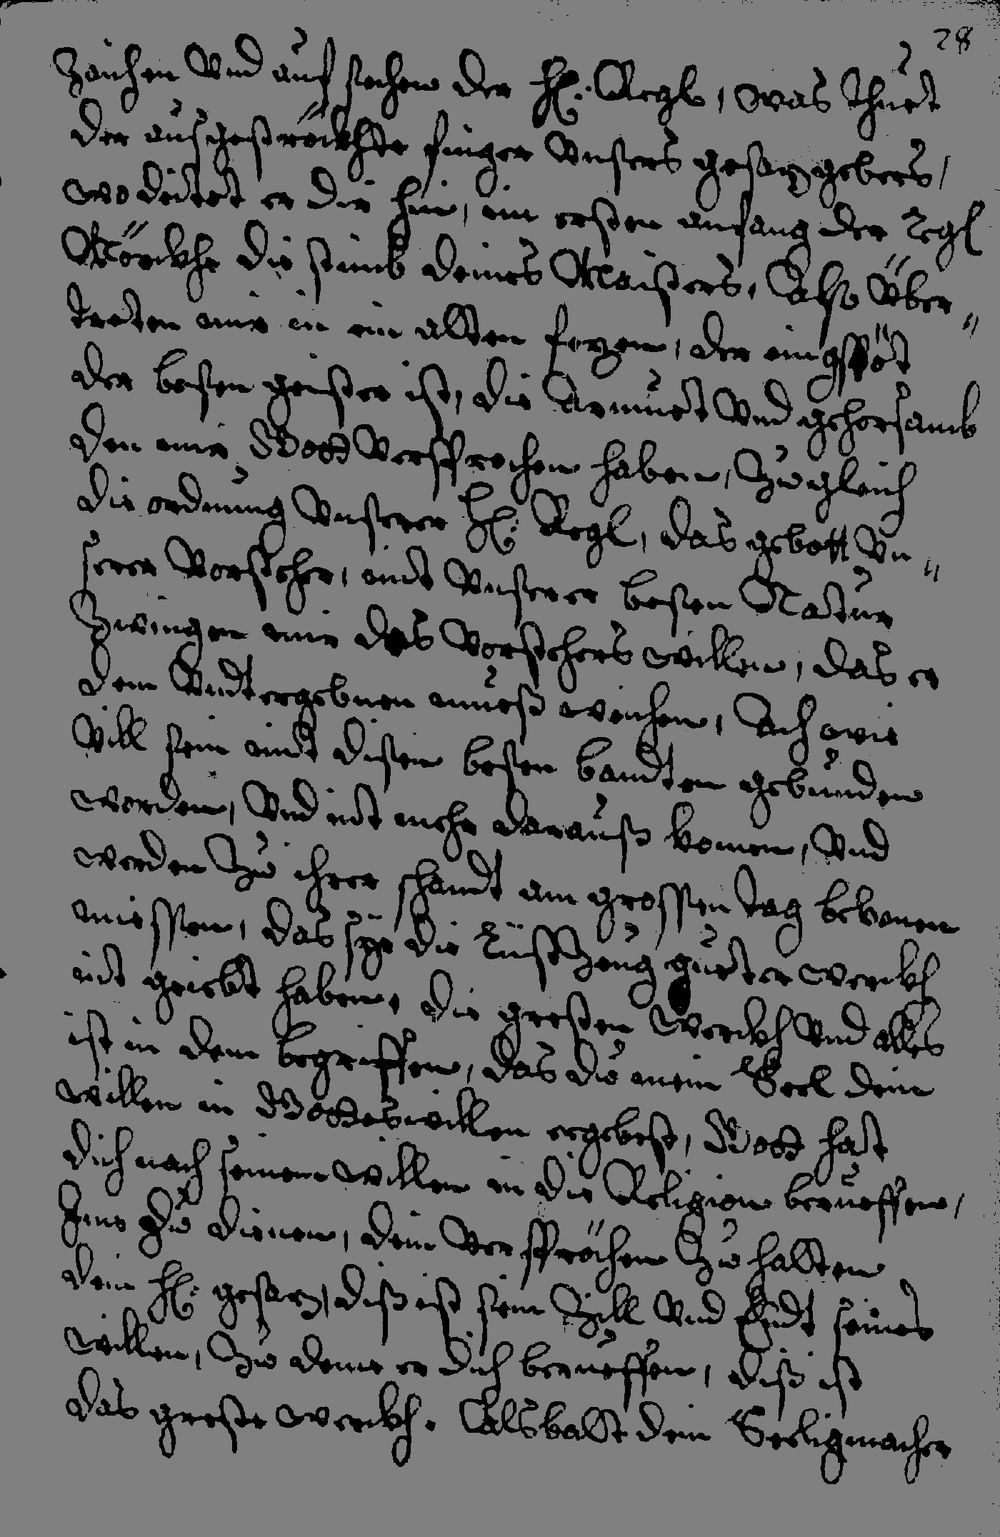 28
Zaichen Vnd aufsechen der H: Regl, was thuet
der ausgeströckhte finger Vnsers gesaz gebers,
wo deitet er dir hin, im ersten anfang der regl
Mörckhe die stimb deines Maisters, Also Über„
tretten mir in ein altten fezen, der ein gspöt
der bösen geister ist, die Armuet Vnd gehorsamb
den mir Gott Versprochen haben, Zu gleich
die ordnung Vnserer H: Regl, das gebott Vn„
serer Vorsteher, mit Vnserer bösen Natur
Zwingen mir des Vorstehers willen, das er
dem Vndtergebnen muess weichen, Ach wie
Vill sein mit disem bösen bandten gebunden
worden, Vnd nit mehr darauß komen, Vnd
werden Zu ihrer schandt am grossen tag bekenen
miessen, das sye die rüstZeug guetter werckh
nit geiebt haben, die grosten werckh Vnd alles
ist in dem begriffen, das du mein Seel dein
willen in Gottes willen ergebest, Gott hat
dich nach seinem willen in die Religion berueffen,
Ime Zu dienen, dein Verspröchen Zu haltten
dem H: gesaz, diß ist sein Zill Vnd Endt seines
willen, Zu deme er dich berueffen, diß ist
das groste werckh. Alsbaltt dein Seeligmacher